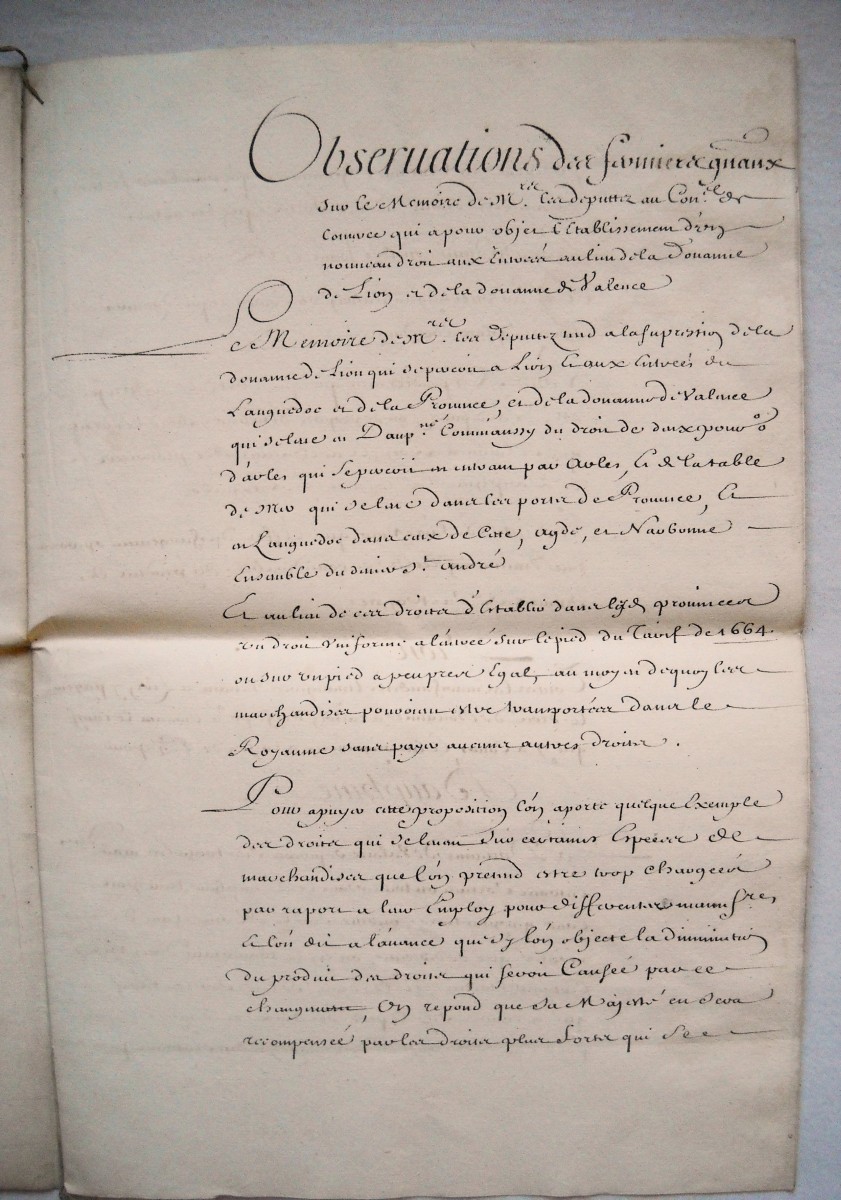 Obseruations des fermiers gnaux
sur le Memoire de Mrs. les deputtez au Conel. de
Comerce qui a pour objet l'Etablissement d'un
nouveau droit aux Entrées au lieu de la Douanne
de Lion et de la douanne de Valence
Le Memoire de Mrs. les deputez tend a la supression de la
douanne de Lion qui se perçoit a Lion & aux Entrées du
Languedoc et de la Prouince, et de la douanne de Valence
qui se leue en Daupné. Comme aussy du droit de deux pour %
d'arles qui se perçoit en entrant par Arles, & de la table
de Mer qui se leue dans les ports de Prouince, &
en Languedoc dans ceux de Cete, agde, et Narbonne
Ensemble du denier St. andré
Et au lieu de ces droits d'Etablir dans lesd. prouinces
un droit vniforme a l'entrée sur le pied du Tarif de 1664
ou sur vn pied a peu pres Egal, au moyen de quoy les
marchandises pouroient estre transportées dans le
Royaume sans payer aucuns autres droits.
Pour apuyer cette proposition l'on aporte quelque Exemple
des droits qui se leuent sur certaines Especes de
marchandises que l'on prétend estre trop chargées
par raport a leur Employ pour differentes manufres
& l'on dit a l'auance que sy l'on objecte la diminution
du produit des droits qui seroit Causée par ce
changement, On repond que Sa Majesté en sera
recompensée par les droits plus forts qui se